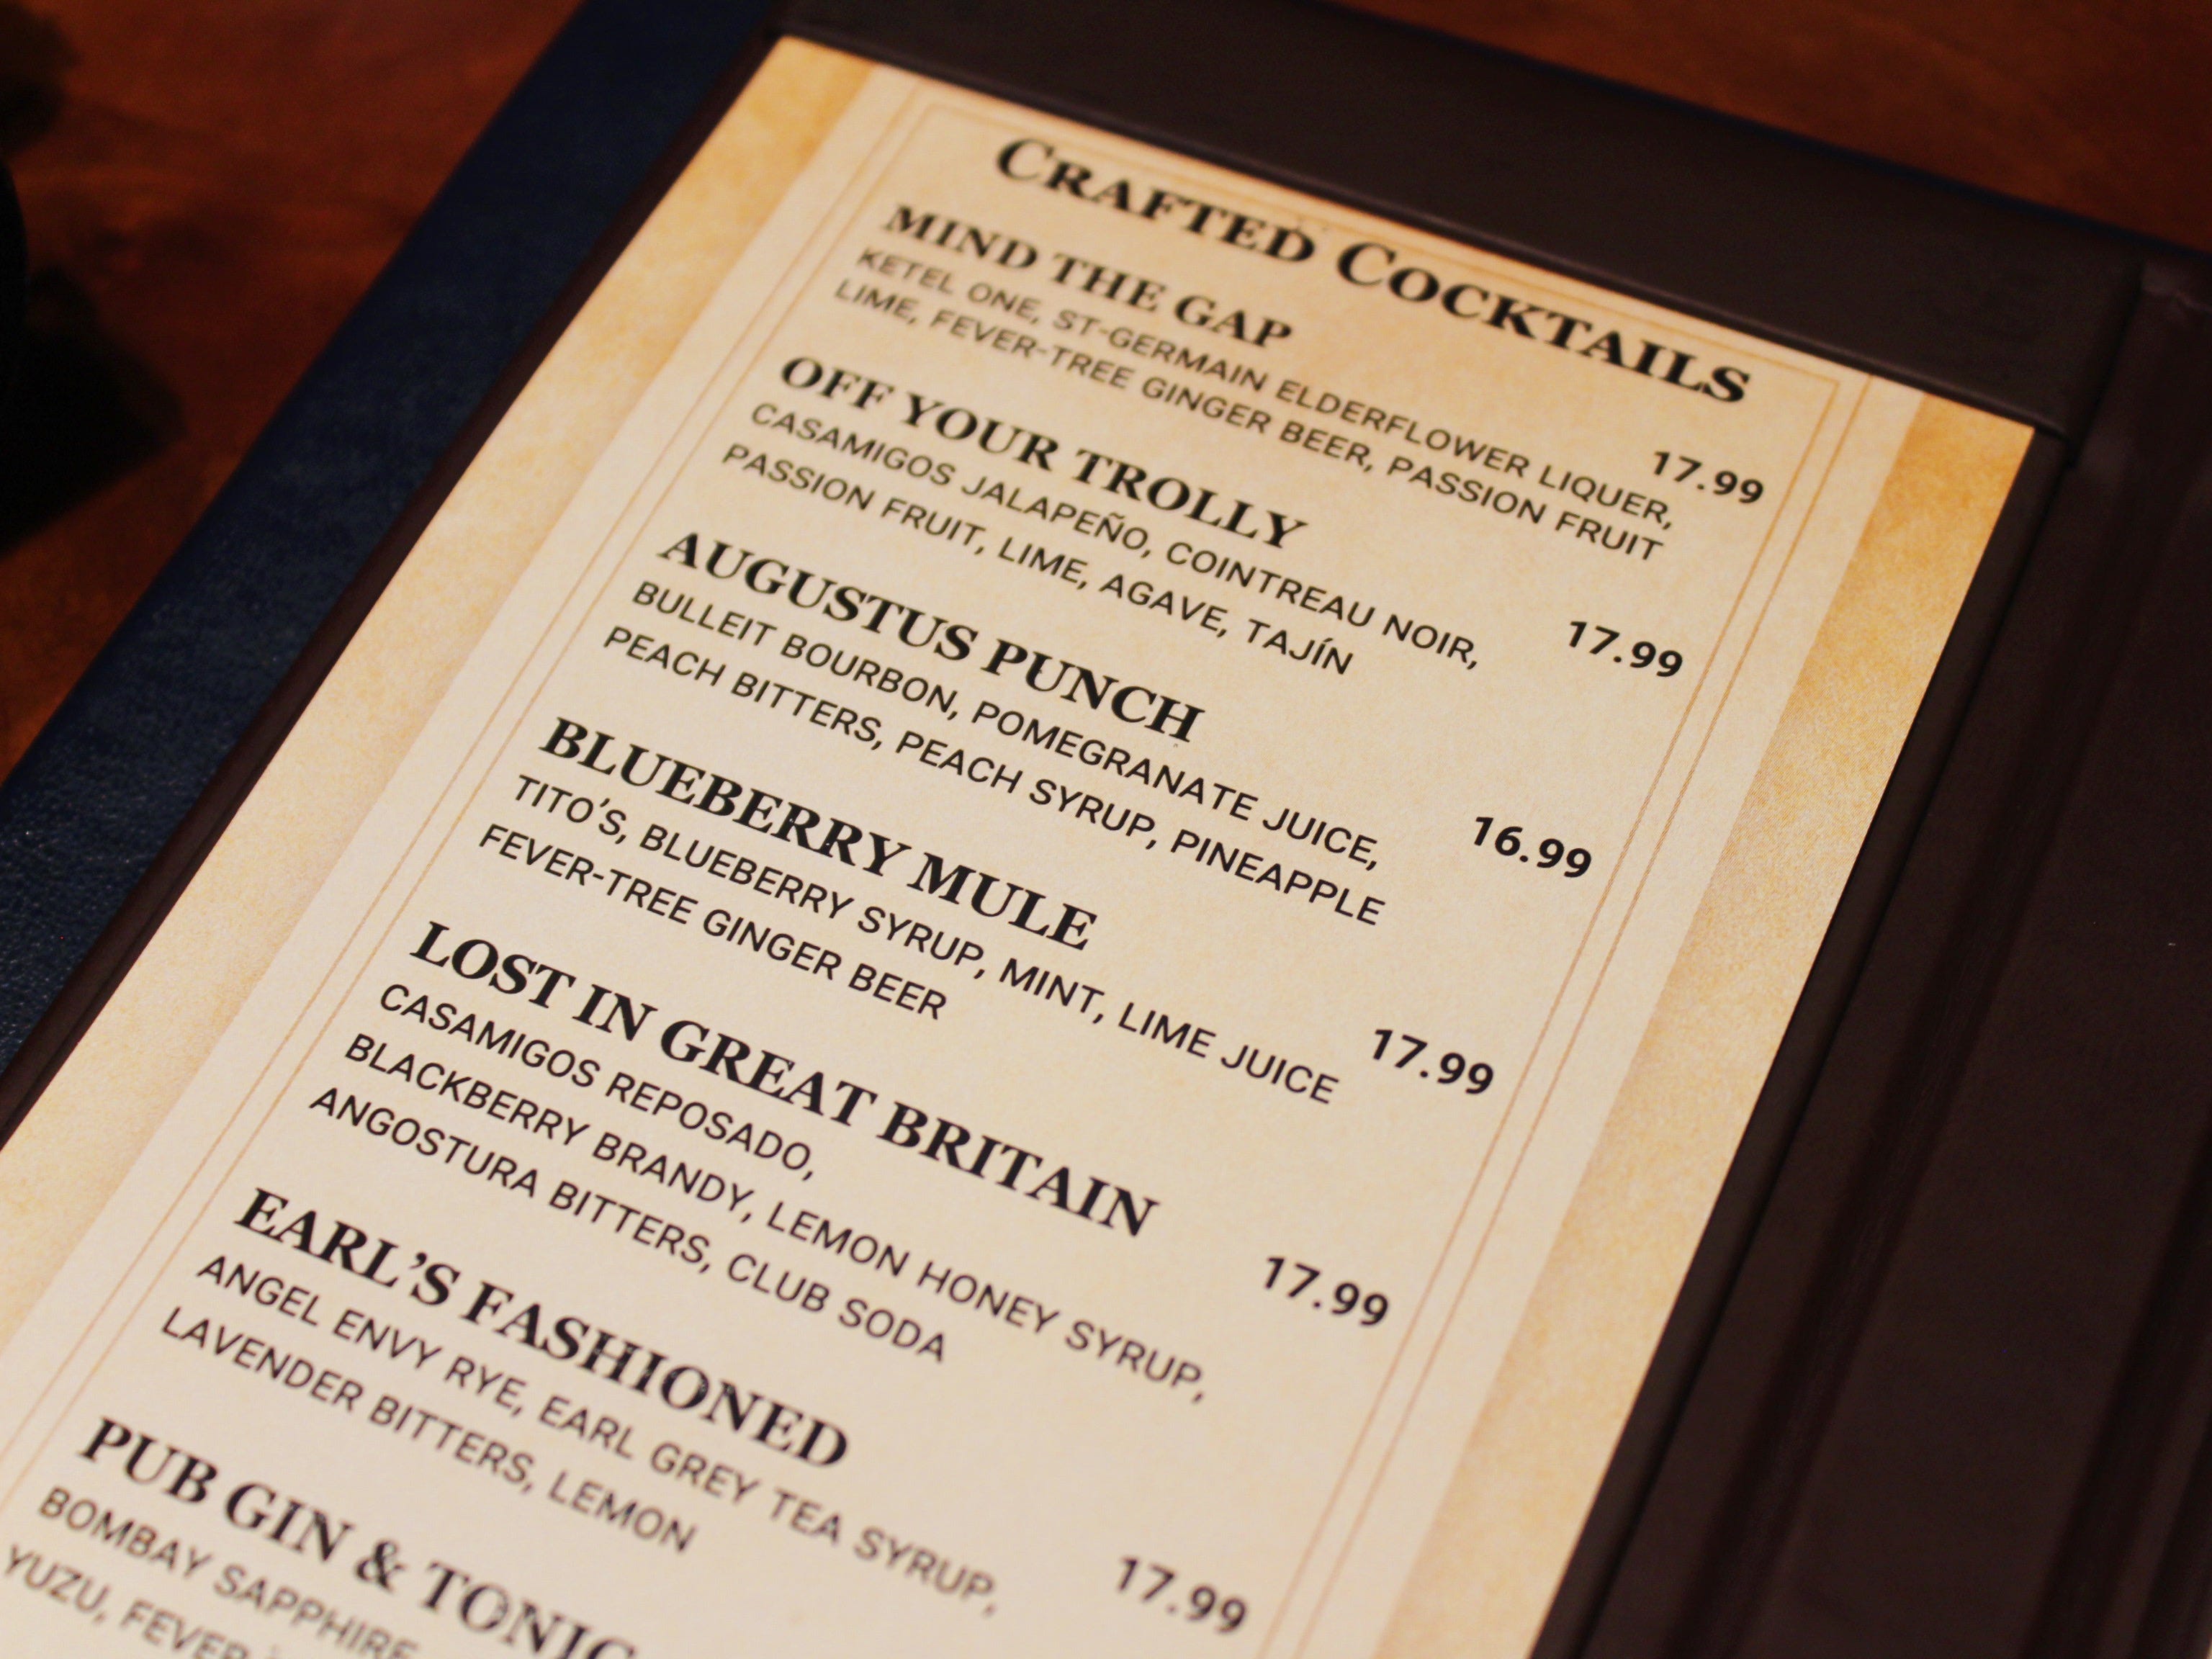 CRAFTED COCKTAILS
MIND THE GAP 17.99
KETEL ONE, ST-GERMAIN ELDERFLOWER LIQUER,
LIME, FEVER-TREE GINGER BEER, PASSION FRUIT
OFF YOUR TROLLY 17.99
CASAMIGOS JALAPEÑO, COINTREAU NOIR,
PASSION FRUIT, LIME, AGAVE, TAJÍN
AUGUSTUS PUNCH 16.99
BULLEIT BOURBON, POMEGRANATE JUICE,
PEACH BITTERS, PEACH SYRUP, PINEAPPLE
BLUEBERRY MULE 17.99
TITO'S, BLUEBERRY SYRUP, MINT, LIME JUICE
FEVER-TREE GINGER BEER
LOST IN GREAT BRITAIN 17.99
CASAMIGOS REPOSADO,
BLACKBERRY BRANDY, LEMON HONEY SYRUP,
ANGOSTURA BITTERS, CLUB SODA
EARL'S FASHIONED 17.99
ANGEL ENVY RYE, EARL GREY TEA SYRUP,
LAVENDER BITTERS, LEMON
PUB GIN & TONIC
BOMBAY SAPPHIRE
YUZU, FEVER